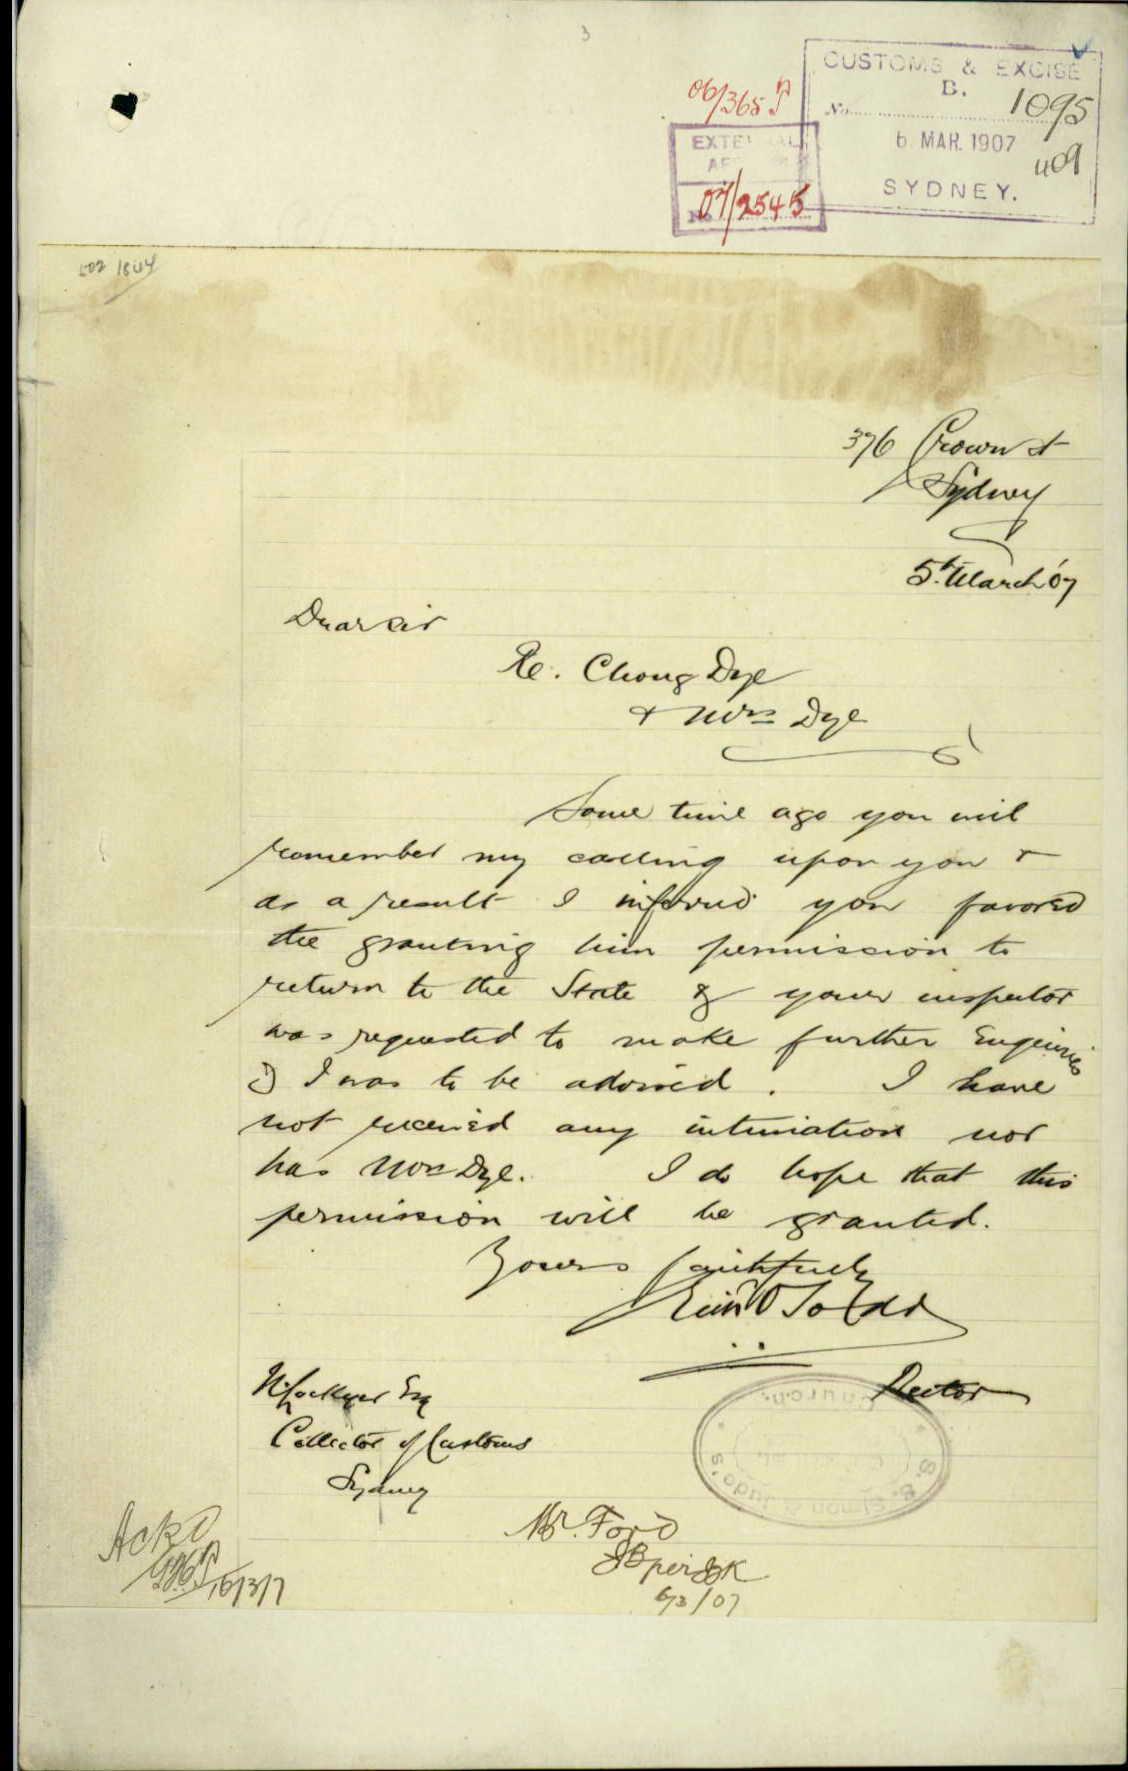 3
06/365
CUSTOMS & EXCISE
B.
No. 1095
6 MAR. 1907
409
SYDNEY.
EXTERNAL
No 07/2545
376 Crown St
Sydney
5th March '07
Dear Sir
Re. Chong Dye
& Mrs Dye
Some time ago you will
remember my calling upon you &
as a result I inferred you favored
the granting him permission to
return to the State & your inspector
was requested to make further Enquiries
& I was to be advised. I have
not received any intimation nor
has Mrs Dye. I do hope that this
permission will be granted.
Yours faithfully
Rector
N. Lockyer Esq
Collector of Customs
Sydney
S. Simon & Jude's
Ackd
16/3/7
Mr. Ford
6/3/07